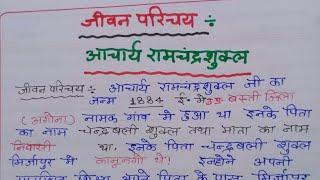 जीवन परिचय ÷
आचार्य रामचंद्रशुक्ल
जीवन परिचय ÷ आचार्य रामचंद्रशुक्ल जी का
जन्म 1884 ई. में बस्ती जिला
(अगोना) नामक गांव में हुआ था इनके पिता
का नाम चन्द्रबली शुक्ल तथा माता का नाम
निवासी था. इनके पिता चन्द्रबली शुक्ल
मिर्जापुर में कानूनगो थे। इन्होने अपनी